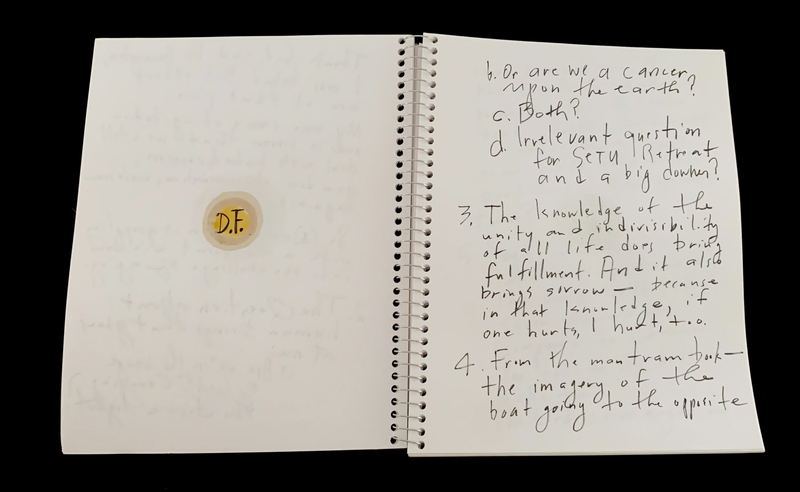 D.F.
b. Or are we a cancer
upon the earth?
c. Both?
d. Irrelevant question
for SETU Retreat
and a big downer?
3. The knowledge of the
unity and indivisibility
of all life does bring
fulfillment. And it also
brings sorrow — because
in that knowledge, if
one hurts, I hurt, too.
4. From the mantram book —
the imagery of the
boat going to the opposite